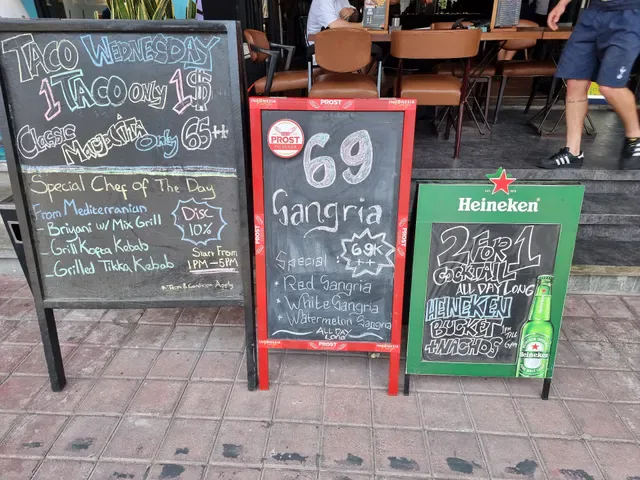 TACO WEDNESDAY
1 TACO ONLY 1$
CLASSIC MARGARITA ONLY 65++
Special Chef of The Day
From Mediterranean
- Briyani w/ Mix Grill
- Grill Kopta Kebab
- Grilled Tikka Kebab
DISC
10%
START FROM
1PM - 5PM
* Term & Condition Apply
PROST
PROST
69
Sangria
Special :
69K
++
* Red Sangria
* White Sangria
* Watermelon Sangria
ALL DAY
LONG
PROST
PROST
PROST
Heineken
2 FOR 1
COCKTAIL
ALL DAY LONG
HEINEKEN
BUCKET
+ NACHOS
1PM
TILL
6PM
Heineken
HEINEKEN